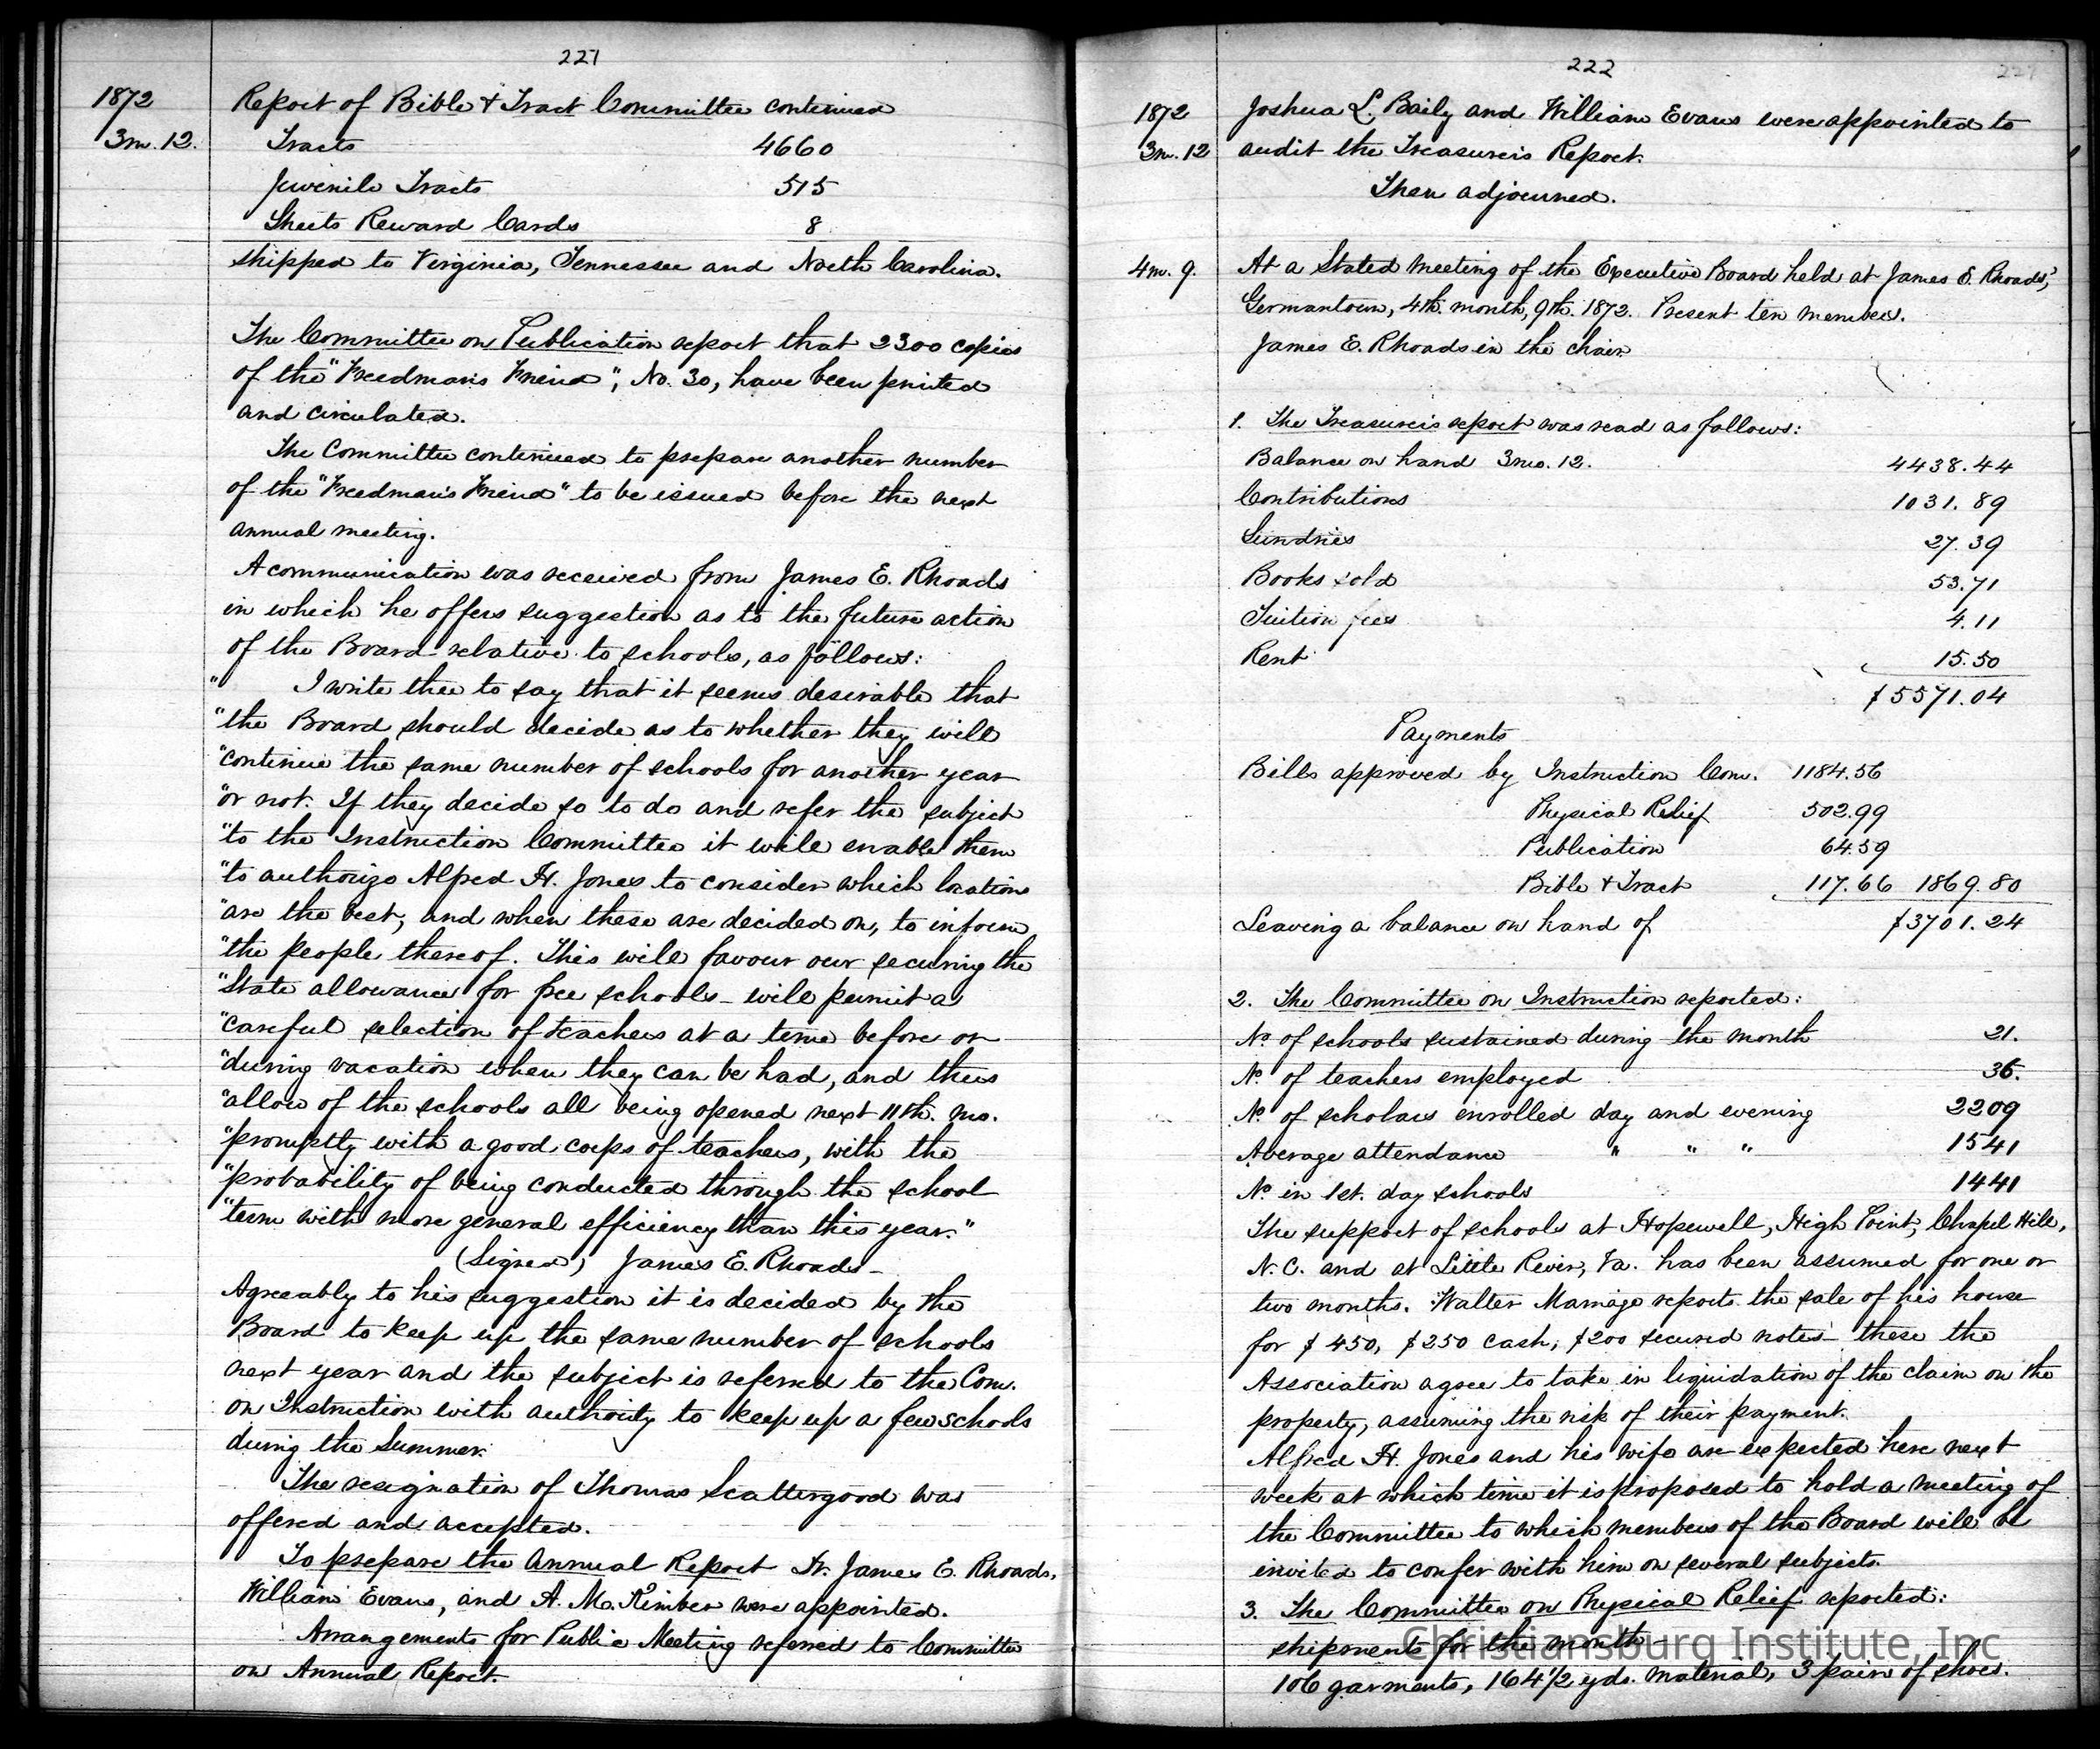 221
1872
Report of Bible & Tract Committee continued
3m. 12.
Tracts 4660
Juvenile Tracts 515
Sheets Reward Cards 8
shipped to Virginia, Tennessee and North Carolina.
The Committee on Publication report that 2300 copies
of the "Freedman's Friend", No. 30, have been printed
and circulated.
The Committee continued to prepare another number
of the "Freedman's Friend" to be issued before the next
annual meeting.
A communication was received from James E. Rhoads
in which he offers suggestion as to the future action
of the Board relative to schools, as follows:
" I write thee to say that it seems desirable that
"the Board should decide as to whether they will
"continue the same number of schools for another year
"or not. If they decide so to do and refer the subject
"to the Instruction Committee it will enable them
"to authorize Alfred H. Jones to consider which locations
"are the best, and when these are decided on, to inform
"the people thereof. This will favour our securing the
"State allowance for free schools - will permit a
"careful selection of teachers at a time before or
"during vacation when they can be had, and thus
"allow of the schools all being opened next 11th. mo.
"promptly with a good corps of teachers, with the
"probability of being conducted through the school
"term with more general efficiency than this year."
(Signed) James E. Rhoads -
Agreeably to his suggestion it is decided by the
Board to keep up the same number of schools
next year and the subject is referred to the Com.
on Instruction with authority to keep up a few schools
during the Summer.
The resignation of Thomas Scattergood was
offered and accepted.
To prepare the Annual Report Dr. James E. Rhoads,
William Evans, and A. M. Kimber were appointed.
Arrangements for Public Meeting referred to Committee
on Annual Report.
222
1872
Joshua L. Baily and William Evans were appointed to
3m. 12
audit the Treasurer's Report.
Then adjourned.
4m. 9.
At a Stated Meeting of the Executive Board held at James E. Rhoads',
Germantown, 4th. month, 9th. 1872. Present ten members.
James E. Rhoads in the chair
1. The Treasurer's report was read as follows:
Balance on hand 3mo. 12. 4438.44
Contributions 1031.89
Sundries 27.39
Books sold 53.71
Tuition fees 4.11
Rent 15.50
$5571.04
Payments
Bills approved by Instruction Com. 1184.56
Physical Relief 502.99
Publication 64.59
Bible & Tract 117.66 1869.80
Leaving a balance on hand of $3701.24
2. The Committee on Instruction reported:
No. of schools sustained during the month 21.
No. of teachers employed 36.
No. of scholars enrolled day and evening 2209
Average attendance " " " 1541
No. in 1st. day schools 1441
The support of schools at Hopewell, High Point, Chapel Hill,
N. C. and at Little River, Va. has been assumed for one or
two months. Walter Marriage reports the sale of his house
for $450, $250 cash, $200 secured notes - these the
Association agree to take in liquidation of the claim on the
property, assuming the risk of their payment.
Alfred H. Jones and his wife are expected here next
week at which time it is proposed to hold a meeting of
the Committee to which members of the Board will be
invited to confer with him on several subjects.
3. The Committee on Physical Relief reported:
shipments for the month -
106 garments, 164 1/2 yds. material, 3 pairs of shoes.
Christiansburg Institute, Inc